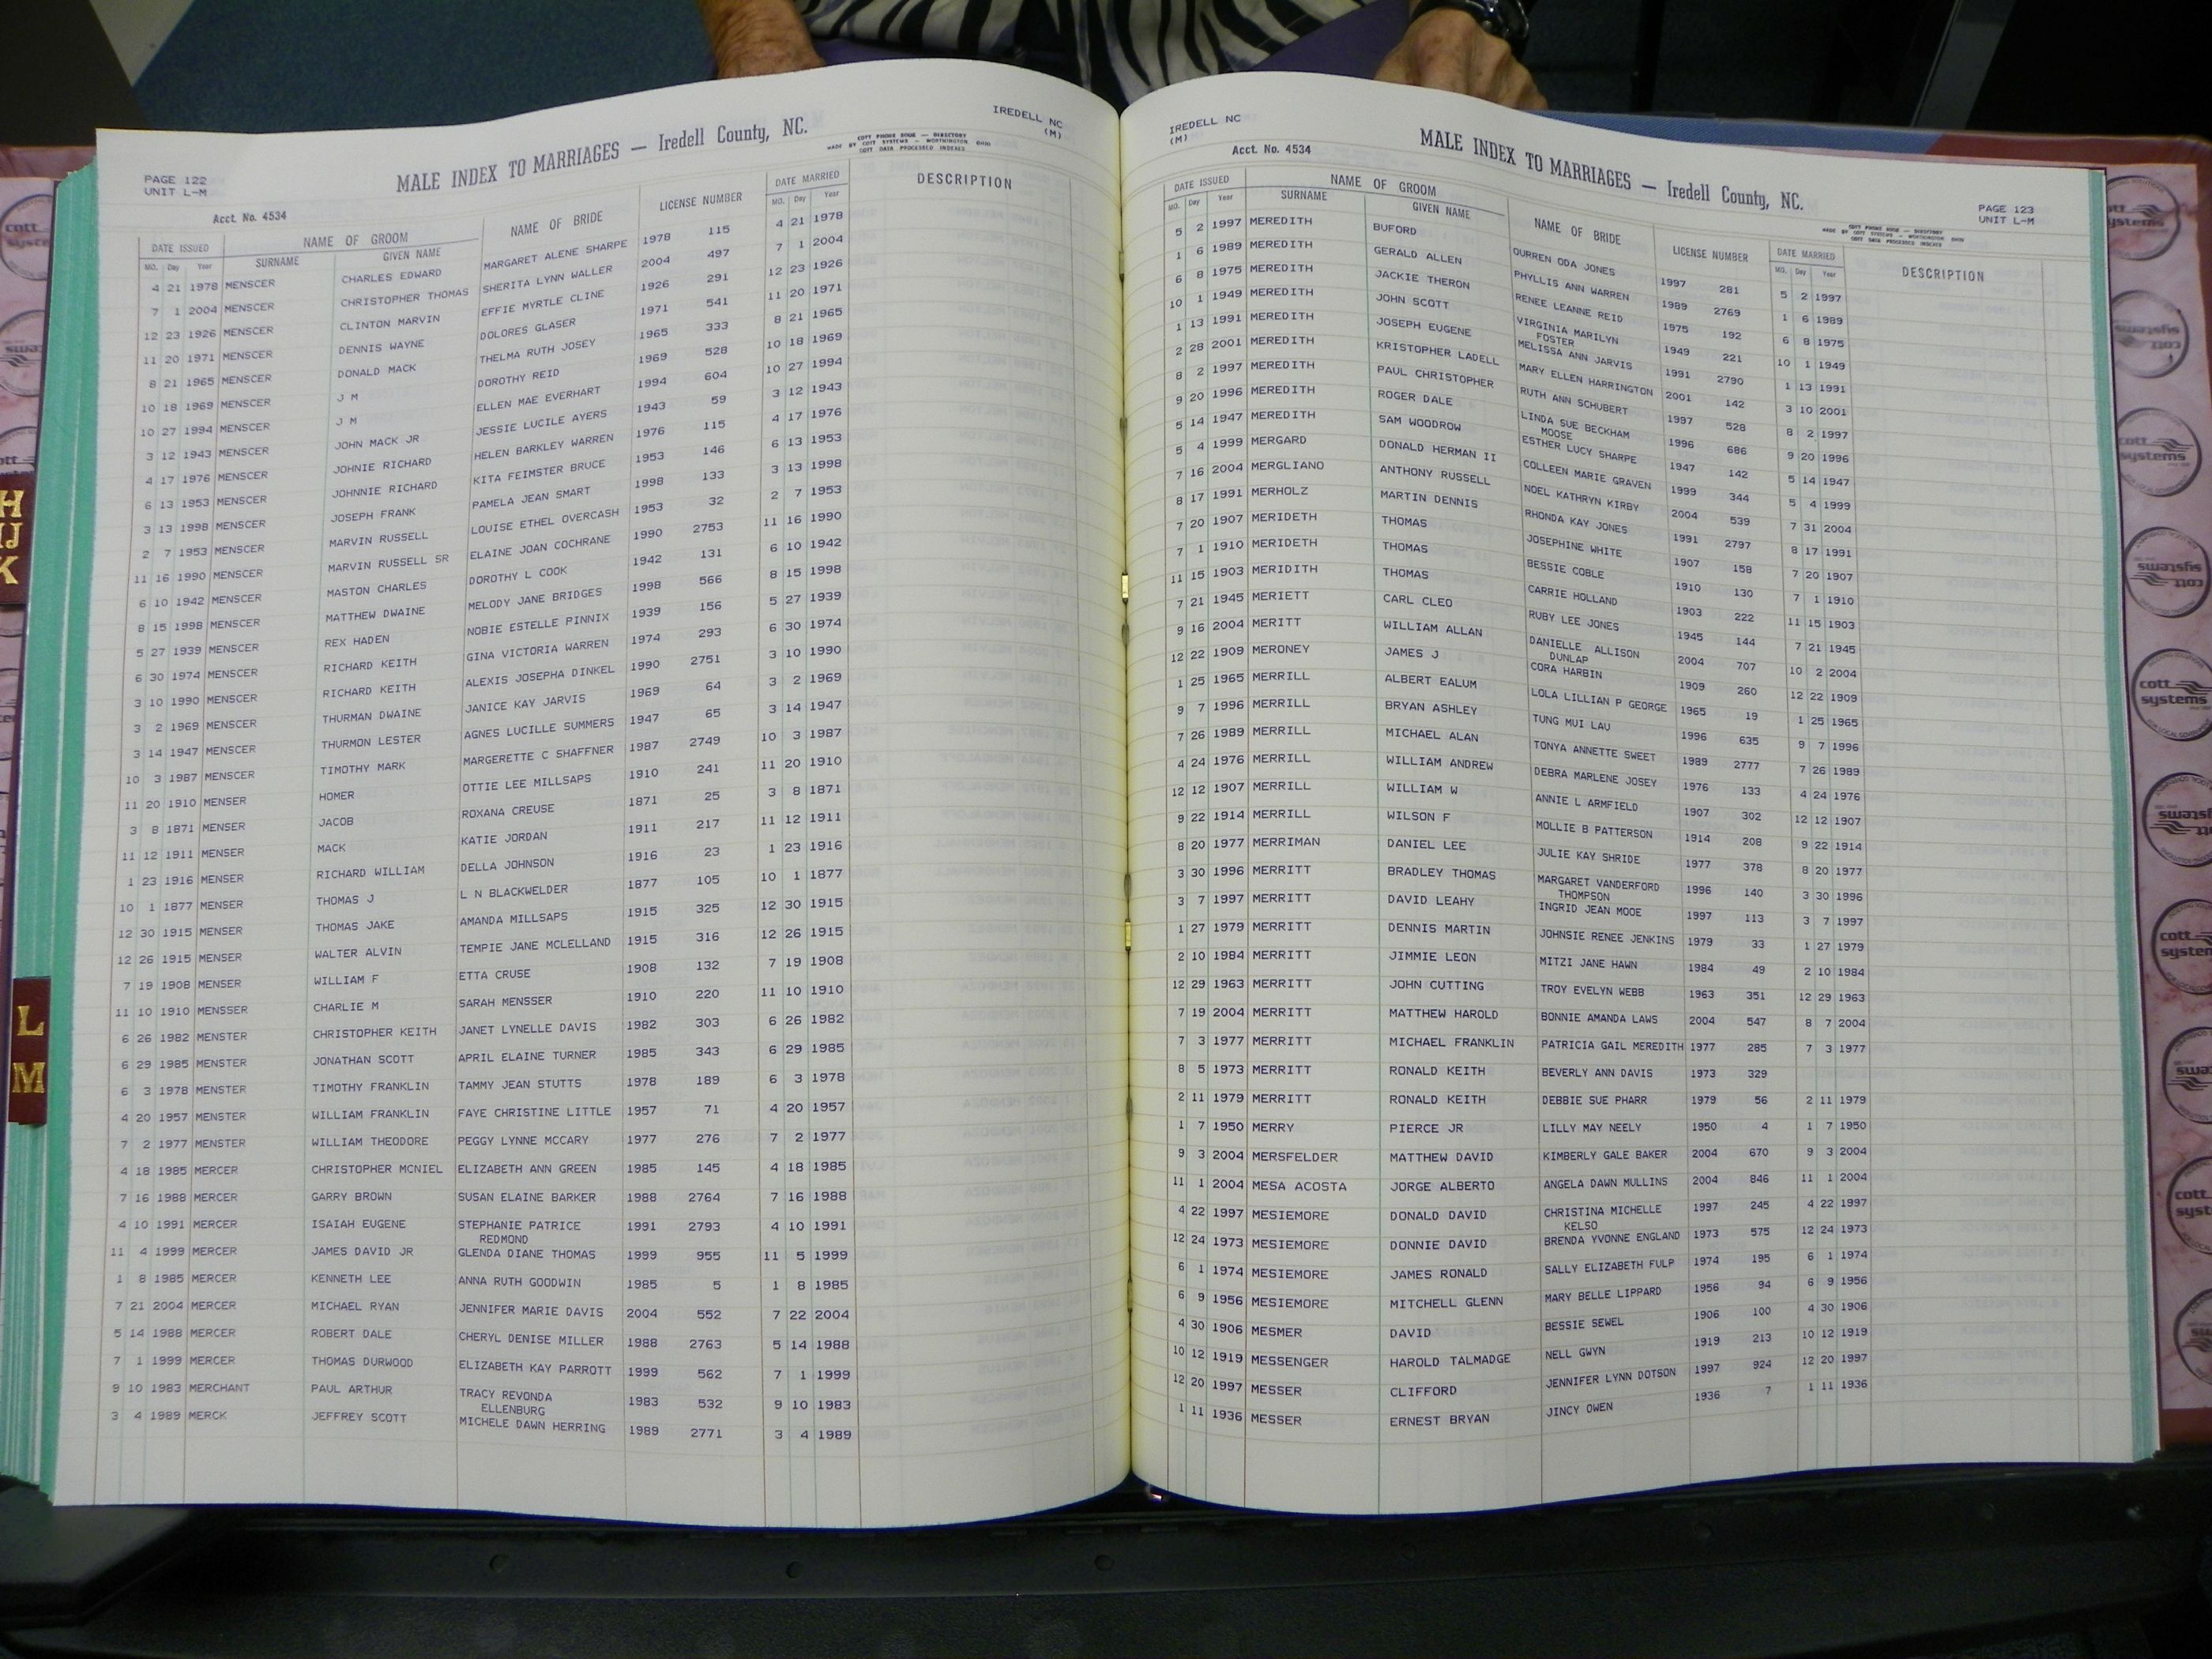 IREDELL NC
(M)
MALE INDEX TO MARRIAGES — Iredell County, NC.
COTT PHONIX BOOK — DIRECTORY
MADE BY COTT SYSTEMS — WORTHINGTON OHIO
COTT DATA PROCESSED INDEXES
PAGE 122
UNIT L-M
Acct. No. 4534
DATE ISSUED NAME OF GROOM NAME OF BRIDE LICENSE NUMBER DATE MARRIED DESCRIPTION
MO. Day Year SURNAME GIVEN NAME MO. Day Year
4 21 1978 MENSCER CHARLES EDWARD MARGARET ALENE SHARPE 1978 115 4 21 1978
7 1 2004 MENSCER CHRISTOPHER THOMAS SHERITA LYNN WALLER 2004 497 7 1 2004
12 23 1926 MENSCER CLINTON MARVIN EFFIE MYRTLE CLINE 1926 291 12 23 1926
11 20 1971 MENSCER DENNIS WAYNE DOLORES GLASER 1971 541 11 20 1971
8 21 1965 MENSCER DONALD MACK THELMA RUTH JOSEY 1965 333 8 21 1965
10 18 1969 MENSCER J M DOROTHY REID 1969 528 10 18 1969
10 27 1994 MENSCER J M ELLEN MAE EVERHART 1994 604 10 27 1994
3 12 1943 MENSCER JOHN MACK JR JESSIE LUCILE AYERS 1943 59 3 12 1943
4 17 1976 MENSCER JOHNIE RICHARD HELEN BARKLEY WARREN 1976 115 4 17 1976
6 13 1953 MENSCER JOHNNIE RICHARD KITA FEIMSTER BRUCE 1953 146 6 13 1953
3 13 1998 MENSCER JOSEPH FRANK PAMELA JEAN SMART 1998 133 3 13 1998
2 7 1953 MENSCER MARVIN RUSSELL LOUISE ETHEL OVERCASH 1953 32 2 7 1953
11 16 1990 MENSCER MARVIN RUSSELL SR ELAINE JOAN COCHRANE 1990 2753 11 16 1990
6 10 1942 MENSCER MASTON CHARLES DOROTHY L COOK 1942 131 6 10 1942
8 15 1998 MENSCER MATTHEW DWAINE MELODY JANE BRIDGES 1998 566 8 15 1998
5 27 1939 MENSCER REX HADEN NOBIE ESTELLE PINNIX 1939 156 5 27 1939
6 30 1974 MENSCER RICHARD KEITH GINA VICTORIA WARREN 1974 293 6 30 1974
3 10 1990 MENSCER RICHARD KEITH ALEXIS JOSEPHA DINKEL 1990 2751 3 10 1990
3 2 1969 MENSCER THURMAN DWAINE JANICE KAY JARVIS 1969 64 3 2 1969
3 14 1947 MENSCER THURMON LESTER AGNES LUCILLE SUMMERS 1947 65 3 14 1947
10 3 1987 MENSCER TIMOTHY MARK MARGERETTE C SHAFFNER 1987 2749 10 3 1987
11 20 1910 MENSER HOMER OTTIE LEE MILLSAPS 1910 241 11 20 1910
3 8 1871 MENSER JACOB ROXANA CREUSE 1871 25 3 8 1871
11 12 1911 MENSER MACK KATIE JORDAN 1911 217 11 12 1911
1 23 1916 MENSER RICHARD WILLIAM DELLA JOHNSON 1916 23 1 23 1916
10 1 1877 MENSER THOMAS J L N BLACKWELDER 1877 105 10 1 1877
12 30 1915 MENSER THOMAS JAKE AMANDA MILLSAPS 1915 325 12 30 1915
12 26 1915 MENSER WALTER ALVIN TEMPIE JANE MCLELLAND 1915 316 12 26 1915
7 19 1908 MENSER WILLIAM F ETTA CRUSE 1908 132 7 19 1908
11 10 1910 MENSSER CHARLIE M SARAH MENSSER 1910 220 11 10 1910
6 26 1982 MENSTER CHRISTOPHER KEITH JANET LYNELLE DAVIS 1982 303 6 26 1982
6 29 1985 MENSTER JONATHAN SCOTT APRIL ELAINE TURNER 1985 343 6 29 1985
6 3 1978 MENSTER TIMOTHY FRANKLIN TAMMY JEAN STUTTS 1978 189 6 3 1978
4 20 1957 MENSTER WILLIAM FRANKLIN FAYE CHRISTINE LITTLE 1957 71 4 20 1957
7 2 1977 MENSTER WILLIAM THEODORE PEGGY LYNNE MCCARY 1977 276 7 2 1977
4 18 1985 MERCER CHRISTOPHER MCNIEL ELIZABETH ANN GREEN 1985 145 4 18 1985
7 16 1988 MERCER GARRY BROWN SUSAN ELAINE BARKER 1988 2764 7 16 1988
4 10 1991 MERCER ISAIAH EUGENE STEPHANIE PATRICE 1991 2793 4 10 1991
REDMOND
11 4 1999 MERCER JAMES DAVID JR GLENDA DIANE THOMAS 1999 955 11 5 1999
1 8 1985 MERCER KENNETH LEE ANNA RUTH GOODWIN 1985 5 1 8 1985
7 21 2004 MERCER MICHAEL RYAN JENNIFER MARIE DAVIS 2004 552 7 22 2004
5 14 1988 MERCER ROBERT DALE CHERYL DENISE MILLER 1988 2763 5 14 1988
7 1 1999 MERCER THOMAS DURWOOD ELIZABETH KAY PARROTT 1999 562 7 1 1999
9 10 1983 MERCHANT PAUL ARTHUR TRACY REVONDA 1983 532 9 10 1983
ELLENBURG
3 4 1989 MERCK JEFFREY SCOTT MICHELE DAWN HERRING 1989 2771 3 4 1989
IREDELL NC
(M)
Acct. No. 4534
MALE INDEX TO MARRIAGES — Iredell County, NC.
PAGE 123
UNIT L-M
COTT PHONIX BOOK — DIRECTORY
MADE BY COTT SYSTEMS — WORTHINGTON OHIO
COTT DATA PROCESSED INDEXES
DATE ISSUED NAME OF GROOM NAME OF BRIDE LICENSE NUMBER DATE MARRIED DESCRIPTION
MO. Day Year SURNAME GIVEN NAME MO. Day Year
5 2 1997 MEREDITH BUFORD OURREN ODA JONES 1997 281 5 2 1997
1 6 1989 MEREDITH GERALD ALLEN PHYLLIS ANN WARREN 1989 2769 1 6 1989
6 8 1975 MEREDITH JACKIE THERON RENEE LEANNE REID 1975 192 6 8 1975
10 1 1949 MEREDITH JOHN SCOTT VIRGINIA MARILYN 1949 221 10 1 1949
FOSTER
1 13 1991 MEREDITH JOSEPH EUGENE MELISSA ANN JARVIS 1991 2790 1 13 1991
2 28 2001 MEREDITH KRISTOPHER LADELL MARY ELLEN HARRINGTON 2001 142 3 10 2001
8 2 1997 MEREDITH PAUL CHRISTOPHER RUTH ANN SCHUBERT 1997 528 8 2 1997
9 20 1996 MEREDITH ROGER DALE LINDA SUE BECKHAM 1996 686 9 20 1996
MOOSE
5 14 1947 MEREDITH SAM WOODROW ESTHER LUCY SHARPE 1947 142 5 14 1947
5 4 1999 MERGARD DONALD HERMAN II COLLEEN MARIE GRAVEN 1999 344 5 4 1999
7 16 2004 MERGLIANO ANTHONY RUSSELL NOEL KATHRYN KIRBY 2004 539 7 31 2004
8 17 1991 MERHOLZ MARTIN DENNIS RHONDA KAY JONES 1991 2797 8 17 1991
7 20 1907 MERIDETH THOMAS JOSEPHINE WHITE 1907 158 7 20 1907
7 1 1910 MERIDETH THOMAS BESSIE COBLE 1910 130 7 1 1910
11 15 1903 MERIDITH THOMAS CARRIE HOLLAND 1903 222 11 15 1903
7 21 1945 MERIETT CARL CLEO RUBY LEE JONES 1945 144 7 21 1945
9 16 2004 MERITT WILLIAM ALLAN DANIELLE ALLISON 2004 707 10 2 2004
DUNLAP
12 22 1909 MERONEY JAMES J CORA HARBIN 1909 260 12 22 1909
1 25 1965 MERRILL ALBERT EALUM LOLA LILLIAN P GEORGE 1965 19 1 25 1965
9 7 1996 MERRILL BRYAN ASHLEY TUNG MUI LAU 1996 635 9 7 1996
7 26 1989 MERRILL MICHAEL ALAN TONYA ANNETTE SWEET 1989 2777 7 26 1989
4 24 1976 MERRILL WILLIAM ANDREW DEBRA MARLENE JOSEY 1976 133 4 24 1976
12 12 1907 MERRILL WILLIAM W ANNIE L ARMFIELD 1907 302 12 12 1907
9 22 1914 MERRILL WILSON F MOLLIE B PATTERSON 1914 208 9 22 1914
8 20 1977 MERRIMAN DANIEL LEE JULIE KAY SHRIDE 1977 378 8 20 1977
3 30 1996 MERRITT BRADLEY THOMAS MARGARET VANDERFORD 1996 140 3 30 1996
THOMPSON
3 7 1997 MERRITT DAVID LEAHY INGRID JEAN MOOE 1997 113 3 7 1997
1 27 1979 MERRITT DENNIS MARTIN JOHNSIE RENEE JENKINS 1979 33 1 27 1979
2 10 1984 MERRITT JIMMIE LEON MITZI JANE HAWN 1984 49 2 10 1984
12 29 1963 MERRITT JOHN CUTTING TROY EVELYN WEBB 1963 351 12 29 1963
7 19 2004 MERRITT MATTHEW HAROLD BONNIE AMANDA LAWS 2004 547 8 7 2004
7 3 1977 MERRITT MICHAEL FRANKLIN PATRICIA GAIL MEREDITH 1977 285 7 3 1977
8 5 1973 MERRITT RONALD KEITH BEVERLY ANN DAVIS 1973 329
2 11 1979 MERRITT RONALD KEITH DEBBIE SUE PHARR 1979 56 2 11 1979
1 7 1950 MERRY PIERCE JR LILLY MAY NEELY 1950 4 1 7 1950
9 3 2004 MERSFELDER MATTHEW DAVID KIMBERLY GALE BAKER 2004 670 9 3 2004
11 1 2004 MESA ACOSTA JORGE ALBERTO ANGELA DAWN MULLINS 2004 846 11 1 2004
4 22 1997 MESIEMORE DONALD DAVID CHRISTINA MICHELLE 1997 245 4 22 1997
KELSO
12 24 1973 MESIEMORE DONNIE DAVID BRENDA YVONNE ENGLAND 1973 575 12 24 1973
6 1 1974 MESIEMORE JAMES RONALD SALLY ELIZABETH FULP 1974 195 6 1 1974
6 9 1956 MESIEMORE MITCHELL GLENN MARY BELLE LIPPARD 1956 94 6 9 1956
4 30 1906 MESMER DAVID BESSIE SEWEL 1906 100 4 30 1906
10 12 1919 MESSENGER HAROLD TALMADGE NELL GWYN 1919 213 10 12 1919
12 20 1997 MESSER CLIFFORD JENNIFER LYNN DOTSON 1997 924 12 20 1997
1 11 1936 MESSER ERNEST BRYAN JINCY OWEN 1936 7 1 11 1936
H
IJ
K
L
M
cott systems